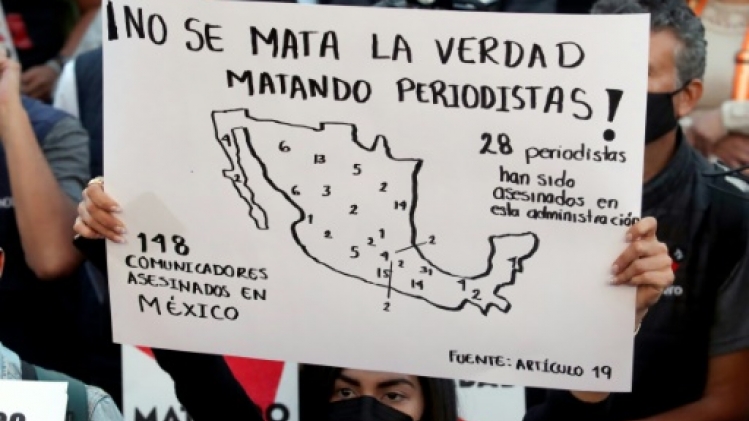 ¡NO SE MATA LA VERDAD
MATANDO PERIODISTAS!
28 periodistas
han sido
asesinados en
esta administración
4
2
6
13
5
6
3
2
14
1
2
2
1
2
5
2
4
2
15
31
14
2
1
2
1
148
COMUNICADORES
ASESINADOS EN
MÉXICO
FUENTE: ARTÍCULO 19